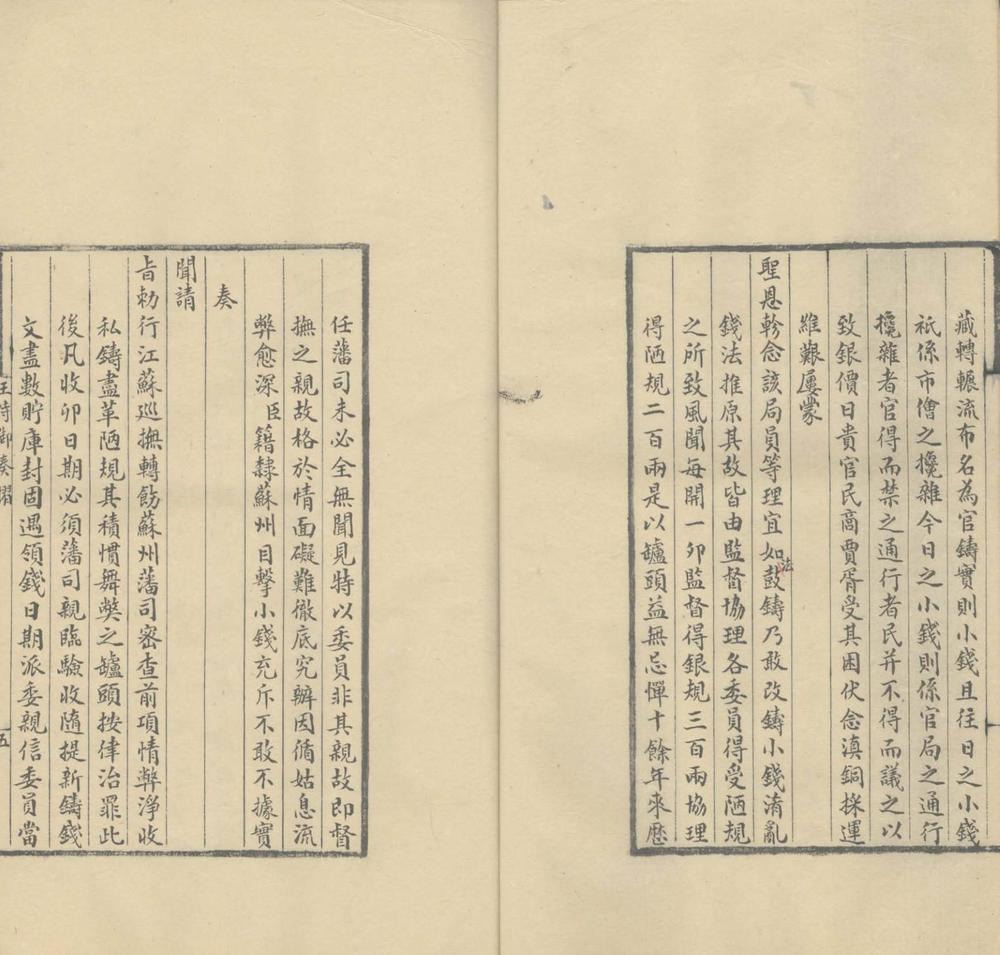 藏轉輾流布名為官鑄實則小錢且往日之小錢
祇係市儈之攙雜今日之小錢則係官局之通行
攙雜者官得而禁之通行者民并不得而議之以
致銀價日貴官民商賈胥受其困伏念滇銅採運
維艱屢蒙
聖恩軫念該局員等理宜如法鼓鑄乃敢改鑄小錢淆亂
錢法推原其故皆由監督協理各委員得受陋規
之所致風聞每開一卯監督得銀規三百兩協理
得陋規二百兩是以罏頭益無忌憚十餘年來歷
任藩司未必全無聞見特以委員非其親故即督
撫之親故格於情面礙難徹底究辦因循姑息流
弊愈深臣籍隸蘇州目擊小錢充斥不敢不據實
奏
聞請
旨勅行江蘇巡撫轉飭蘇州藩司密查前項情弊淨收
私鑄盡革陋規其積慣舞獘之罏頭按律治罪此
後凡收卯日期必須藩司親臨驗收隨提新鑄錢
文盡數貯庫封固遇領錢日期派委親信委員當
王侍御奏摺
五